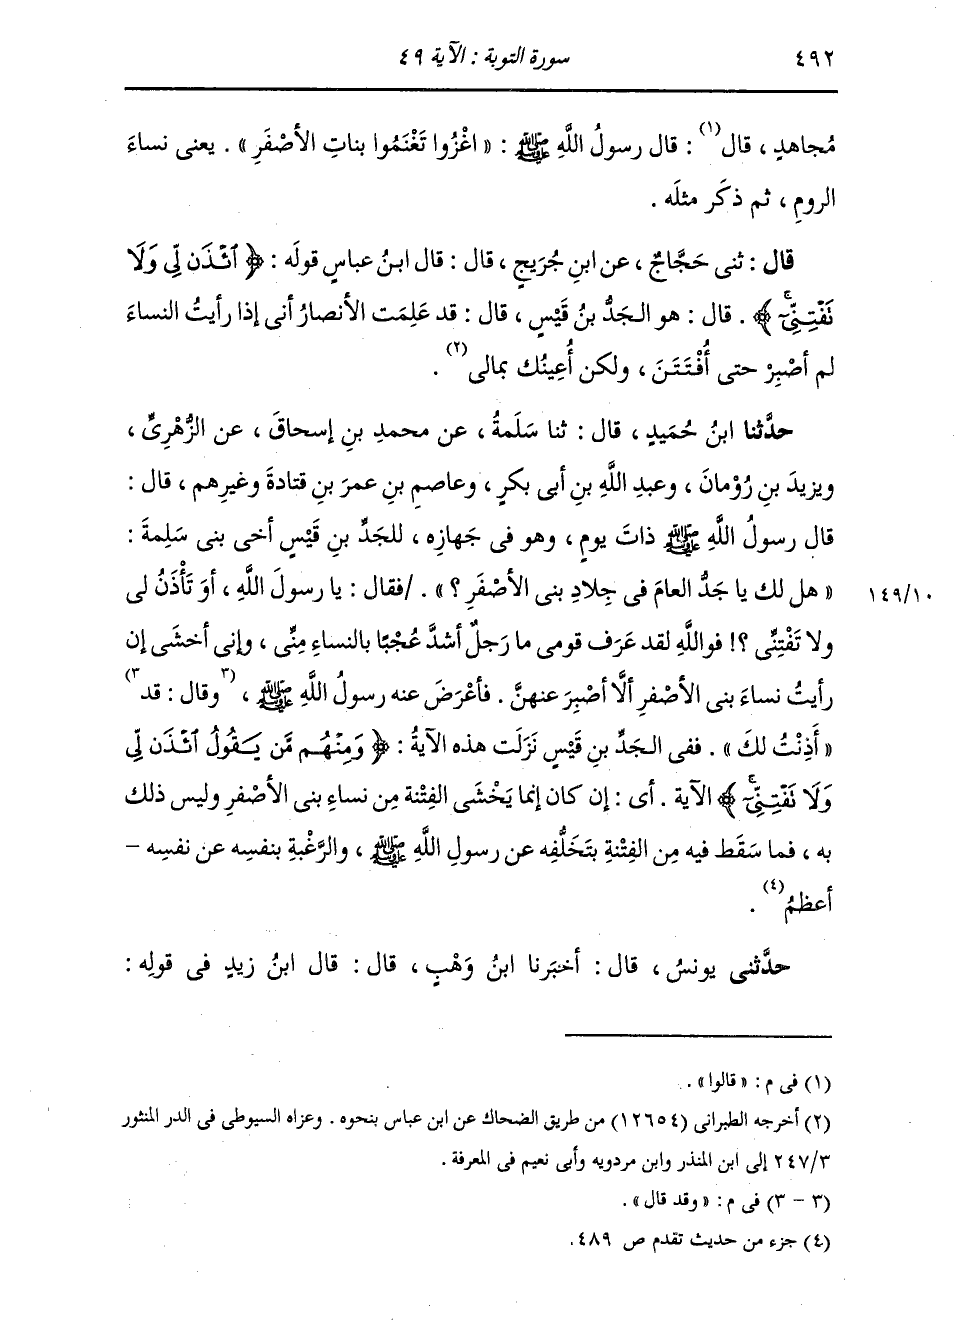 ٤٩٢ سورة التوبة : الآية ٤٩
مُجاهدٍ ، قال(١) : قال رسولُ اللَّهِ ﷺ : « اغْزُوا تَغْنَمُوا بناتِ الأصْفَرِ » . يعنى نساءَ
الرومِ ، ثم ذكَر مثلَه .
قال : ثنى حَجَّاجٌ ، عن ابنِ جُرَيجٍ ، قال : قال ابنُ عباسٍ قولَه : ﴿ ٱئْذَن لِّى وَلَا
نَفْتِنِّىٓۚ ﴾ . قال : هو الجَدُّ بنُ قَيْسٍ ، قال : قد عَلِمَت الأنصارُ أنى إذا رأيتُ النساءَ
لم أصْبِرْ حتى أُفْتَتَنَ ، ولكن أُعِينُك بمالى(٢) .
حدَّثنا ابنُ حُمَيدٍ ، قال : ثنا سَلَمةُ ، عن محمدِ بنِ إسحاقَ ، عن الزُّهْرىِّ ،
ويزيدَ بنِ رُوْمانَ ، وعبدِ اللَّهِ بنِ أبى بكرٍ ، وعاصمِ بنِ عمرَ بنِ قتادةَ وغيرِهم ، قال :
قال رسولُ اللَّهِ ﷺ ذاتَ يومٍ ، وهو فى جَهازِه ، للجَدِّ بنِ قَيْسٍ أخى بنى سَلِمةَ :
« هل لك يا جَدُّ العامَ فى جِلادِ بنى الأصْفَرِ ؟ » . /فقال : يا رسولَ اللَّهِ ، أوَ تَأْذَنُ لى ١٤٩/١٠
ولا تَفْتِنِّى ؟! فواللَّهِ لقد عَرَف قومى ما رَجلٌ أشدَّ عُجْبًا بالنساءِ مِنِّى ، وإنى أخشَى إن
رأيتُ نساءَ بنى الأصْفرِ ألَّا أصْبِرَ عنهنَّ . فأعْرَضَ عنه رسولُ اللَّهِ ﷺ ، (٣وقال : قد٣)
« أَذِنْتُ لكَ » . ففى الجَدِّ بنِ قَيْسٍ نَزَلَت هذه الآيةُ : ﴿ وَمِنْهُم مَّن يَقُولُ ٱئْذَن لِّى
وَلَا نَفْتِنِّىٓۚ ﴾ الآية . أى : إن كان إنما يَخْشَى الفِتْنة مِن نساءِ بنى الأصْفرِ وليس ذلك
به ، فما سَقَط فيه مِن الفِتْنةِ بتَخَلُّفِه عن رسولِ اللَّهِ ﷺ ، والرَّغْبةِ بنفسِه عن نفسِه –
أعظمُ(٤) .
حدَّثنى يونسُ ، قال : أخبَرنا ابنُ وَهْبٍ ، قال : قال ابنُ زيدٍ فى قولِه :
(١) فى م : « قالوا » .
(٢) أخرجه الطبرانى (١٢٦٥٤) من طريق الضحاك عن ابن عباس بنحوه . وعزاه السيوطى فى الدر المنثور
٢٤٧/٣ إلى ابن المنذر وابن مردويه وأبى نعيم فى المعرفة .
(٣ – ٣) فى م : « وقد قال » .
(٤) جزء من حديث تقدم ص ٤٨٩.